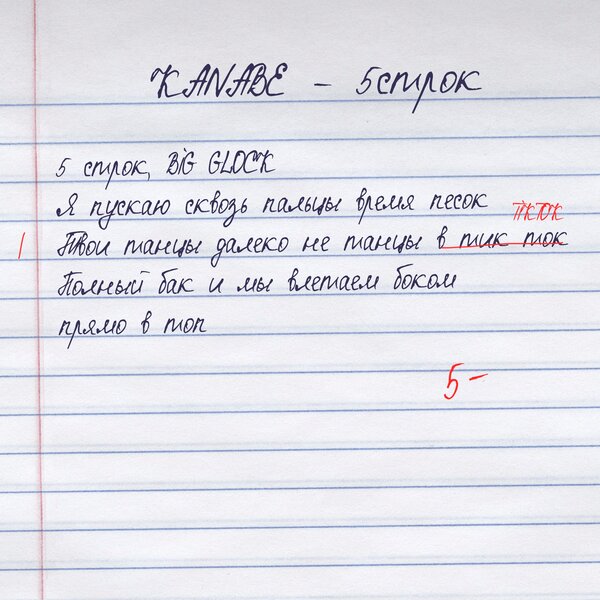 KANABE - 5 строк
5 строк, BiG GLOCK
Я пускаю сквозь пальцы время песок
ТИКТОК
Твои танцы далеко не танцы в тик ток
Полный бак и мы влетаем боком
прямо в топ
5-